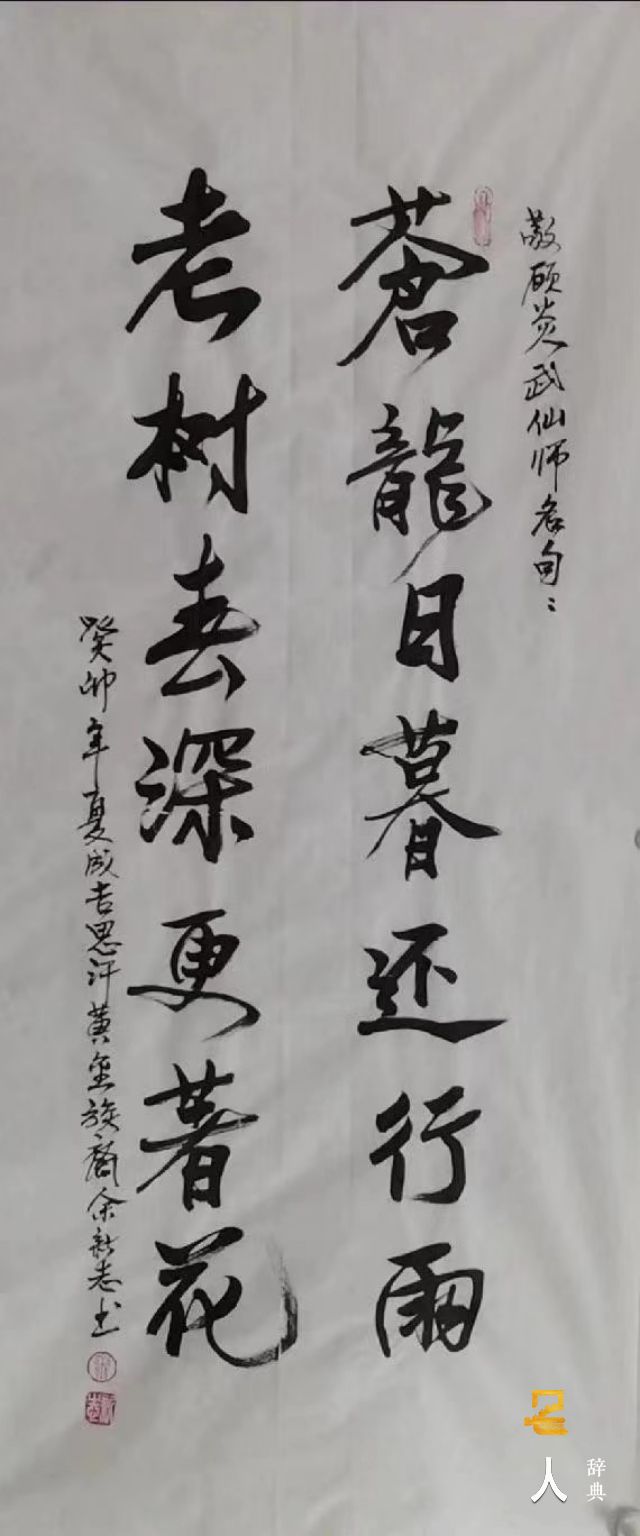 敬顾炎武仙师名句：
蒼龍日暮还行雨
老树春深更著花
癸卯年夏成吉思汗黄金族裔余新志书
名人
辞典